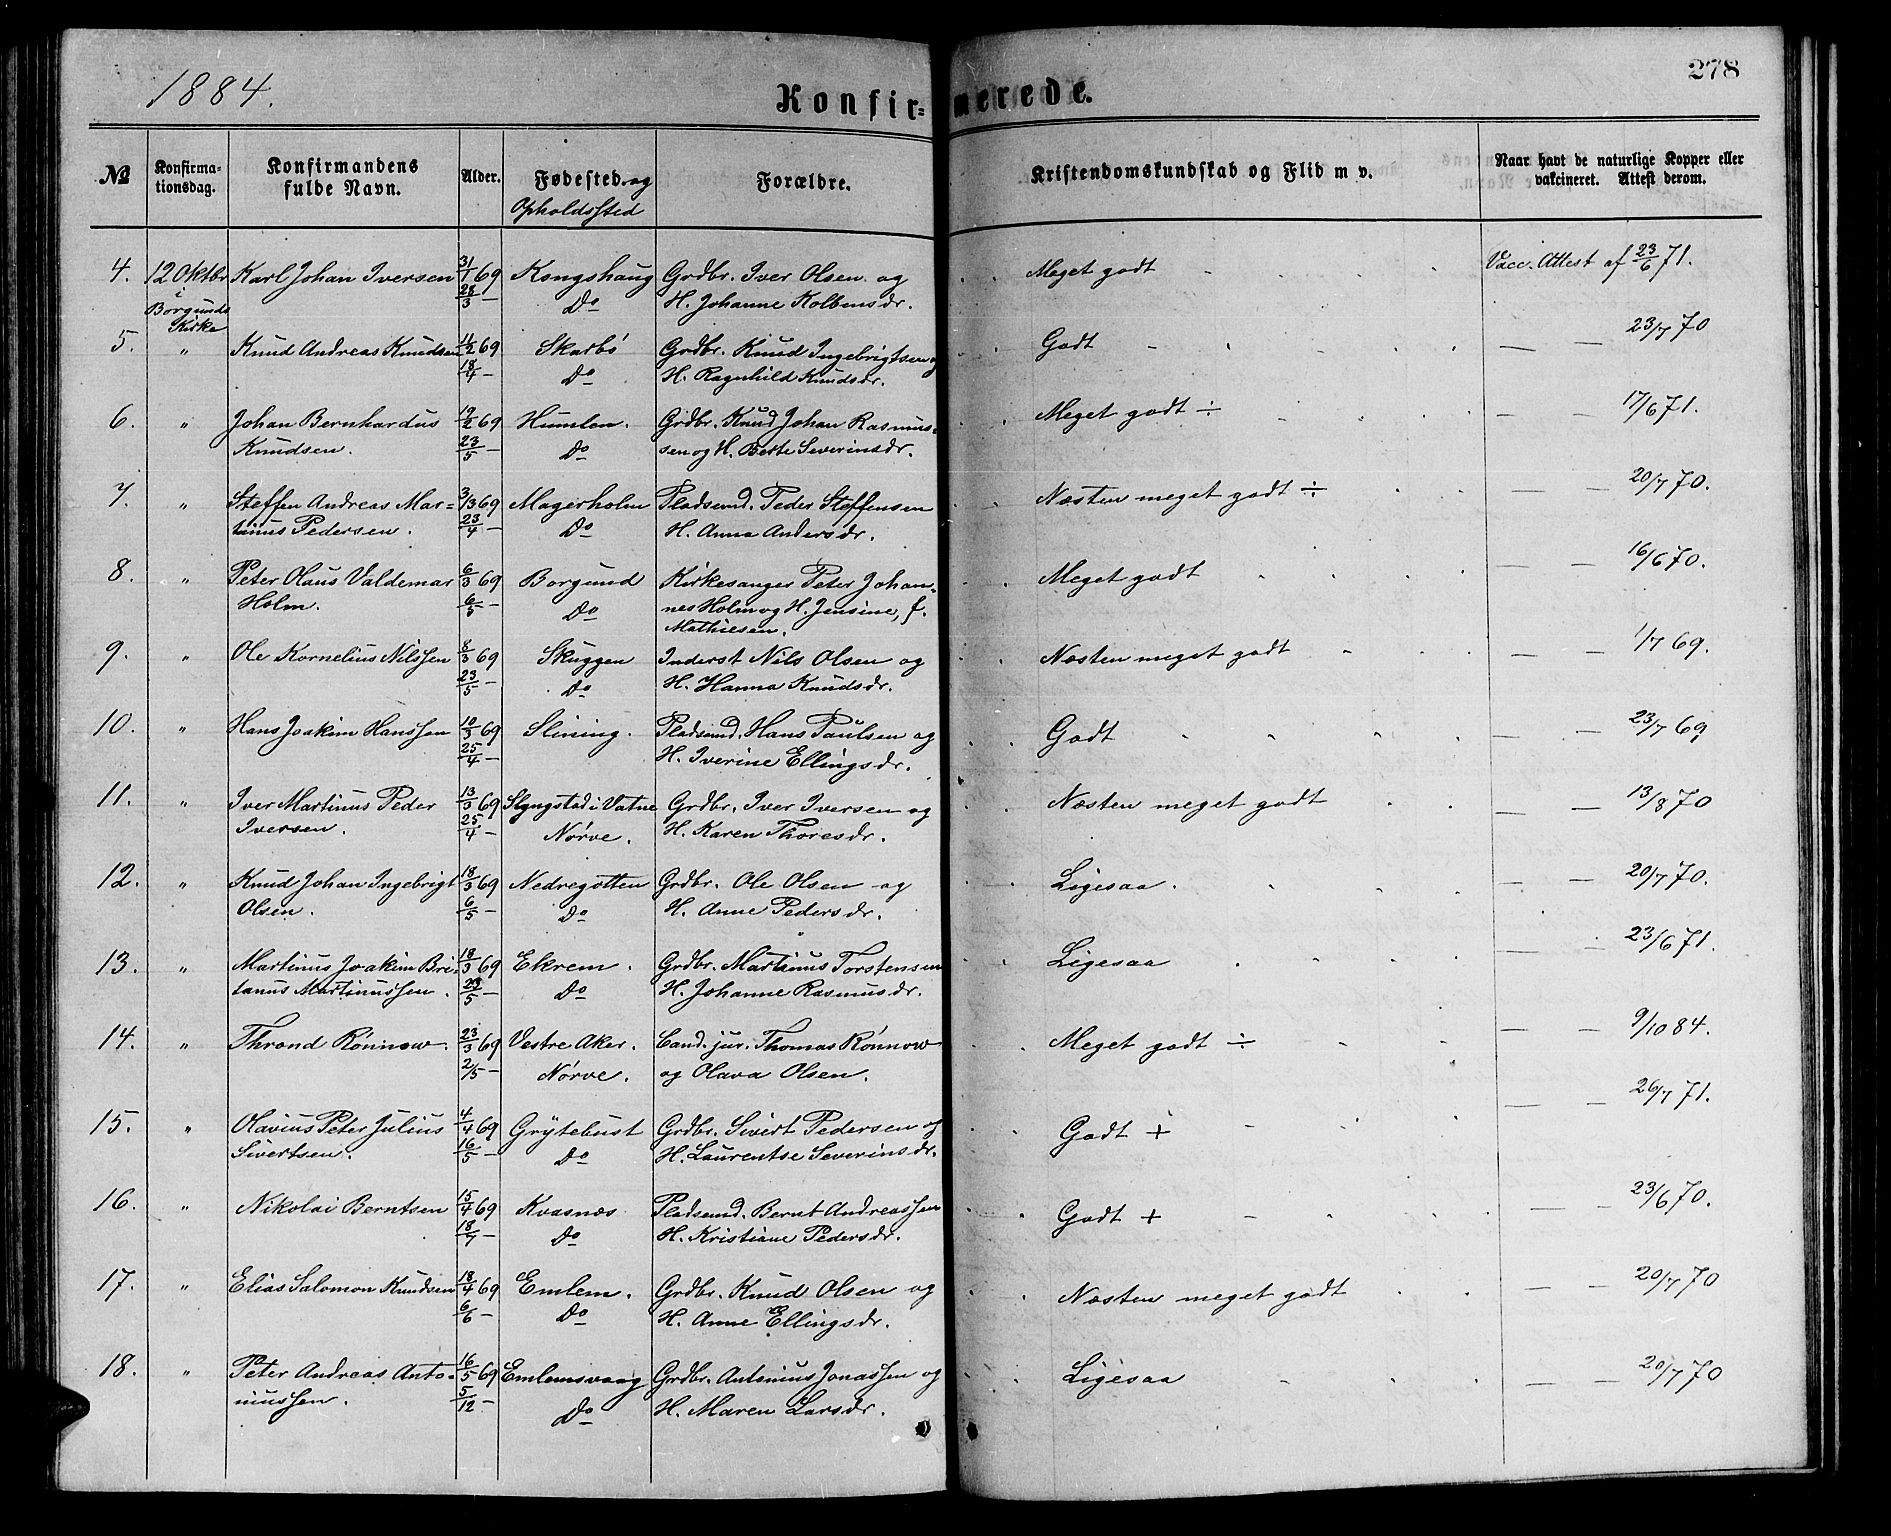 1884.
Konfirmerede.
278
№
Konfirmationsdag.
Konfirmandens fulde Navn.
Alder.
Fødested og Opholdssted
Forældre.
Kristendomskundskab og Flid m v.
Naar havt de naturlige Kopper eller vakcineret. Attest derom.
4. 12 Oktbr Karl Johan Iversen 31/1 69 Kongshaug Grdbr. Iver Olsen og Meget godt Vacc. Attest af 23/6 71.
i Borgunds Kirke 28/3 — Do H. Johanne Kolbensdr.
5. " Knud Andreas Knudsen 11/2 69 Skarbö Grdbr. Knud Ingebrigtsen og Godt — — 23/7 70
18/4 — Do H. Ragnhild Knudsdr.
6. " Johan Bernhardus 19/2 69 Humlen. Grdbr. Knud Johan Rasmus= Meget godt ÷ — — 17/6 71.
Knudsen. 23/5 — Do sen og H. Berte Severinsdr.
7. " Steffen Andreas Mar= 3/3 69 Magerholm Pladsmd. Peder Steffensen Næsten meget godt ÷ — — 20/7 70.
tinus Pedersen. 23/4 — Do H. Anna Andersdr.
8. " Peter Olaus Valdemar 6/3 69 Borgund Kirkesanger Peter Johan= Meget godt — — 16/6 70.
Holm. 6/5 — Do nes Holm og H. Jensine, f.
Mathiesen.
9. " Ole Kornelius Nilssen 8/3 69 Skuggen Inderst Nils Olsen og Næsten meget godt — — 1/7 69.
23/5 — Do H. Hanna Knudsdr.
10. " Hans Joakim Hanssen 10/3 69 Slining. Pladsmd. Hans Paulsen og Godt — — 23/7 69
25/4 — H. Iverine Ellingsdr.
11. " Iver Martinus Peder 13/3 69 Slyngstad i Vatne Grdbr. Iver Iversen og Næsten meget godt — 13/8 70
Iversen. 25/4 — Nörve. H. Karen Thoresdr.
12. " Knud Johan Ingebrigt 18/3 69 Nedregotten Grdbr. Ole Olsen og Ligesaa. — — 20/7 70.
Olsen. 6/5 — Do H. Anne Pedersdr.
13. " Martinus Joakim Bri= 18/3 69 Ekrem. Grdbr. Martinus Torstensen Ligesaa — — 23/6 71.
tanus Martinussen. 23/5 — Do H. Johanne Rasmusdr.
14. " Thrond Rönnow. 23/3 69 Vestre Aker. Cand. jur. Thomas Rönnow Meget godt ÷ — — 9/10 84.
2/5 — Nörve. og Olava Olsen.
15. " Olavius Peter Julius 4/4 69 Grytebust Grdbr. Sivert Pedersen og Godt + — — 26/7 71.
Sivertsen. 16/5 — Do H. Laurentse Severinsdr.
16. " Nikolai Berntsen 15/4 69 Kvasnæs Pladsmd. Bernt Andreassen Godt + — — 23/6 70.
18/7 — Do H. Kristiane Pedersdr.
17. " Elias Salomon Knudsen 18/4 69 Emlem. Grdbr. Knud Olsen og Næsten meget godt — — 20/7 70
6/6 — Do H. Anne Ellingsdr.
18. " Peter Andreas Anto= 16/5 69 Emlemsvaag Grdbr. Antonius Jonassen og Ligesaa — — 20/7 70
niussen. 5/12 — Do H. Maren Larsdr.